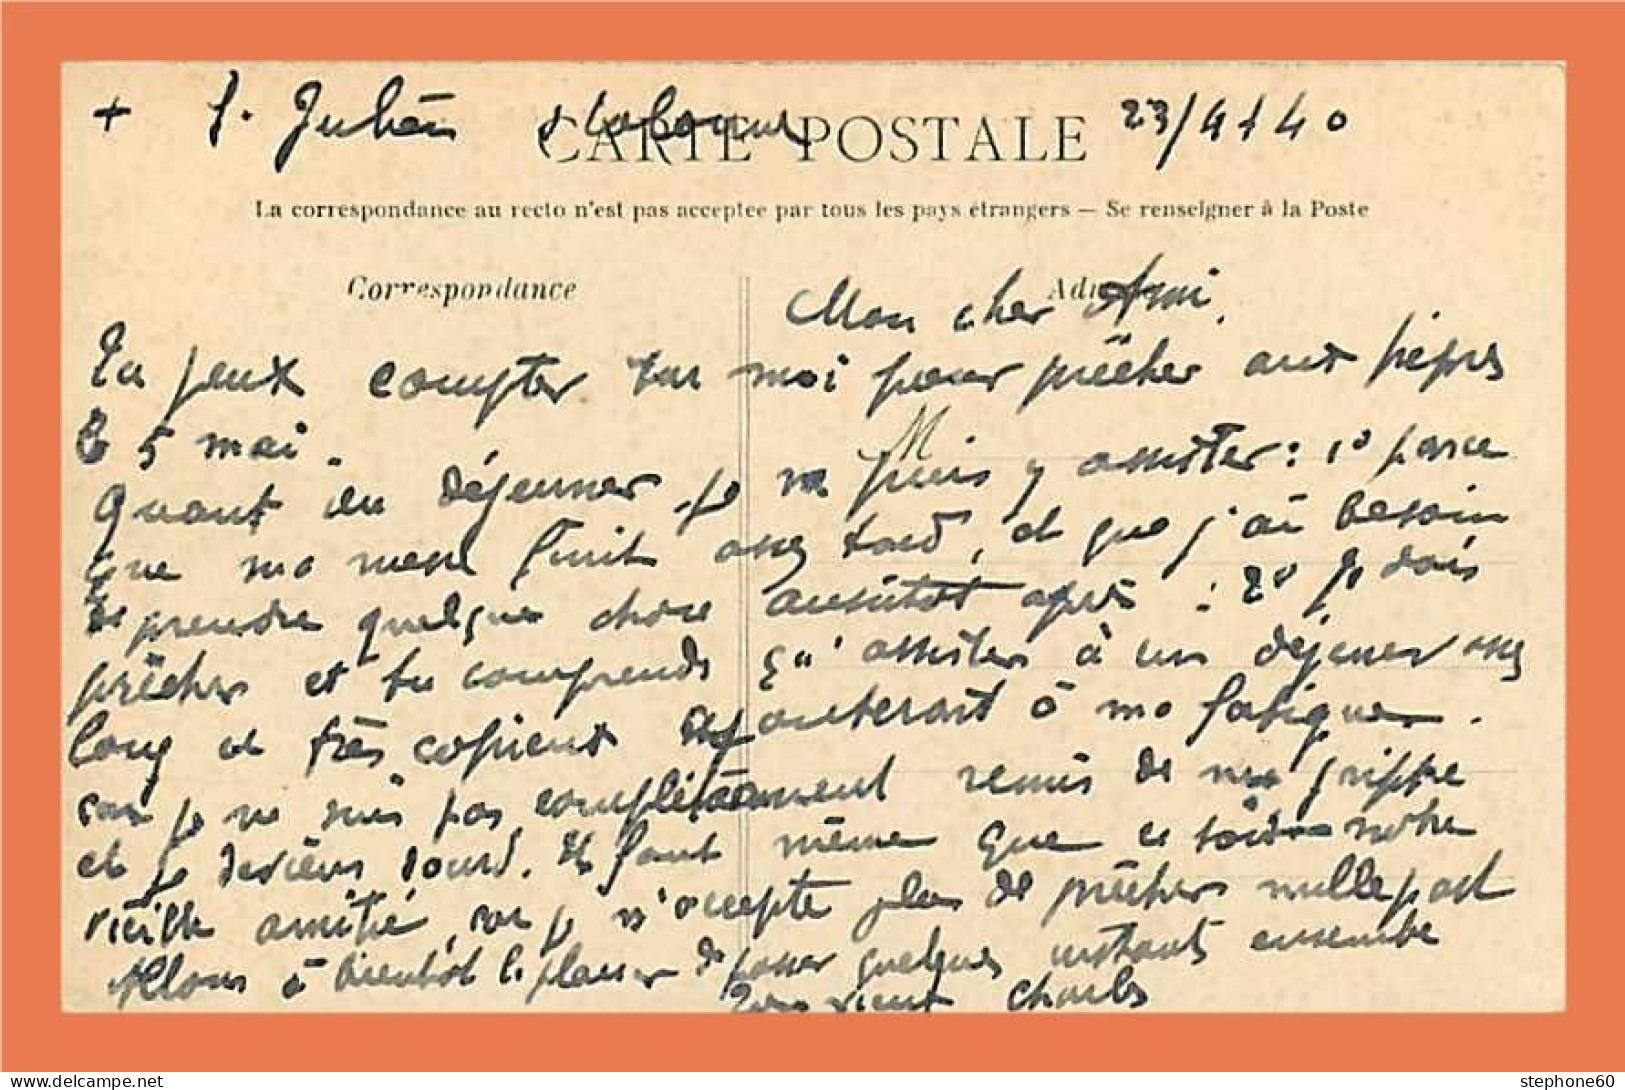 + S. Julien 23/4/40
CARTE POSTALE
La correspondance au recto n'est pas acceptée par tous les pays étrangers — Se renseigner à la Poste
Correspondance
Mon cher Ami,
Tu peux compter sur moi pour prêcher aux
le 5 mai.
Quant au déjeuner je ne puis y assister : 1° parce
que ma messe finit assez tard, et que j'ai besoin
de prendre quelque chose aussitôt après : 2° je dois
prêcher et tu comprends qu'assister à un déjeuner assez
long et très copieux ajouterait à ma fatigue.
car je ne suis pas complètement remis de ma grippe
et je deviens sourd. Il faut même que ce soit notre
vieille amitié, car je n'accepte plus de prêcher nulle part
Allons à bientôt le plaisir de passer quelques instants ensemble
Ton vieux Charles
stephone60